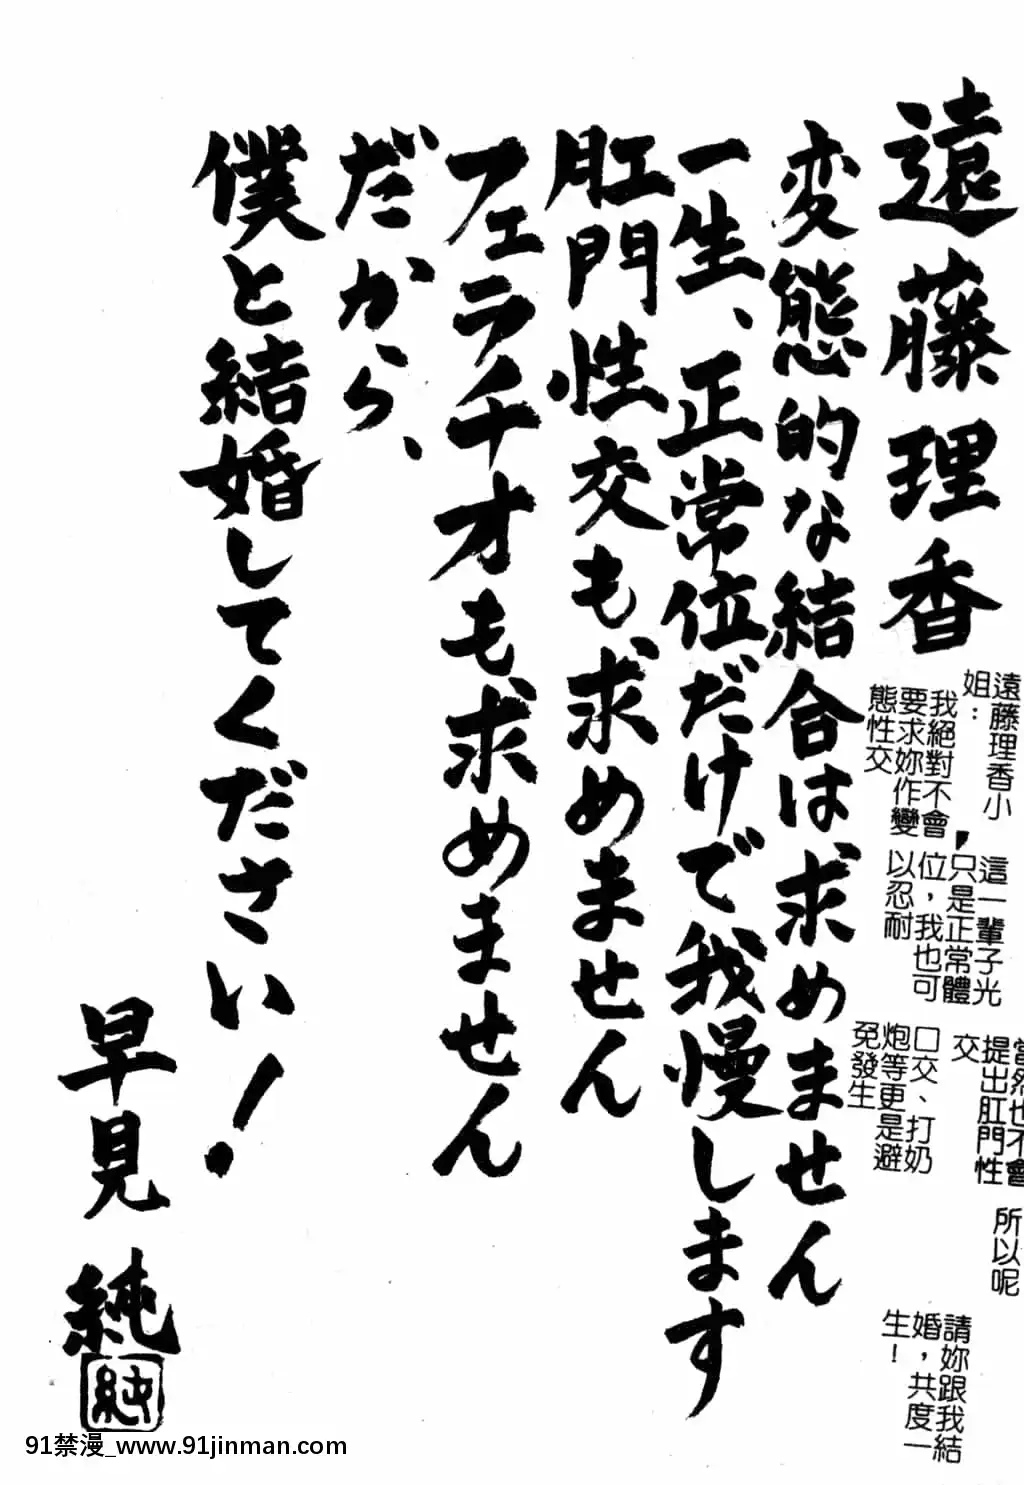 遠藤理香
変態的な結合は、求めません
一生、正常位だけで我慢します
肛門性交も、求めません
フェラチオも、求めません
だから、
僕と結婚してください！
早見 純
純
遠藤理香小
姐：
我絕對不會
要求妳作變
態性交，
這一輩子光
只是正常體
位，我也可
以忍耐
當然也不會
提出肛門性
交
口交、打奶
炮等更是避
免發生
所以呢
請妳跟我結
婚，共度一
生！
91禁漫_www.91jinman.com